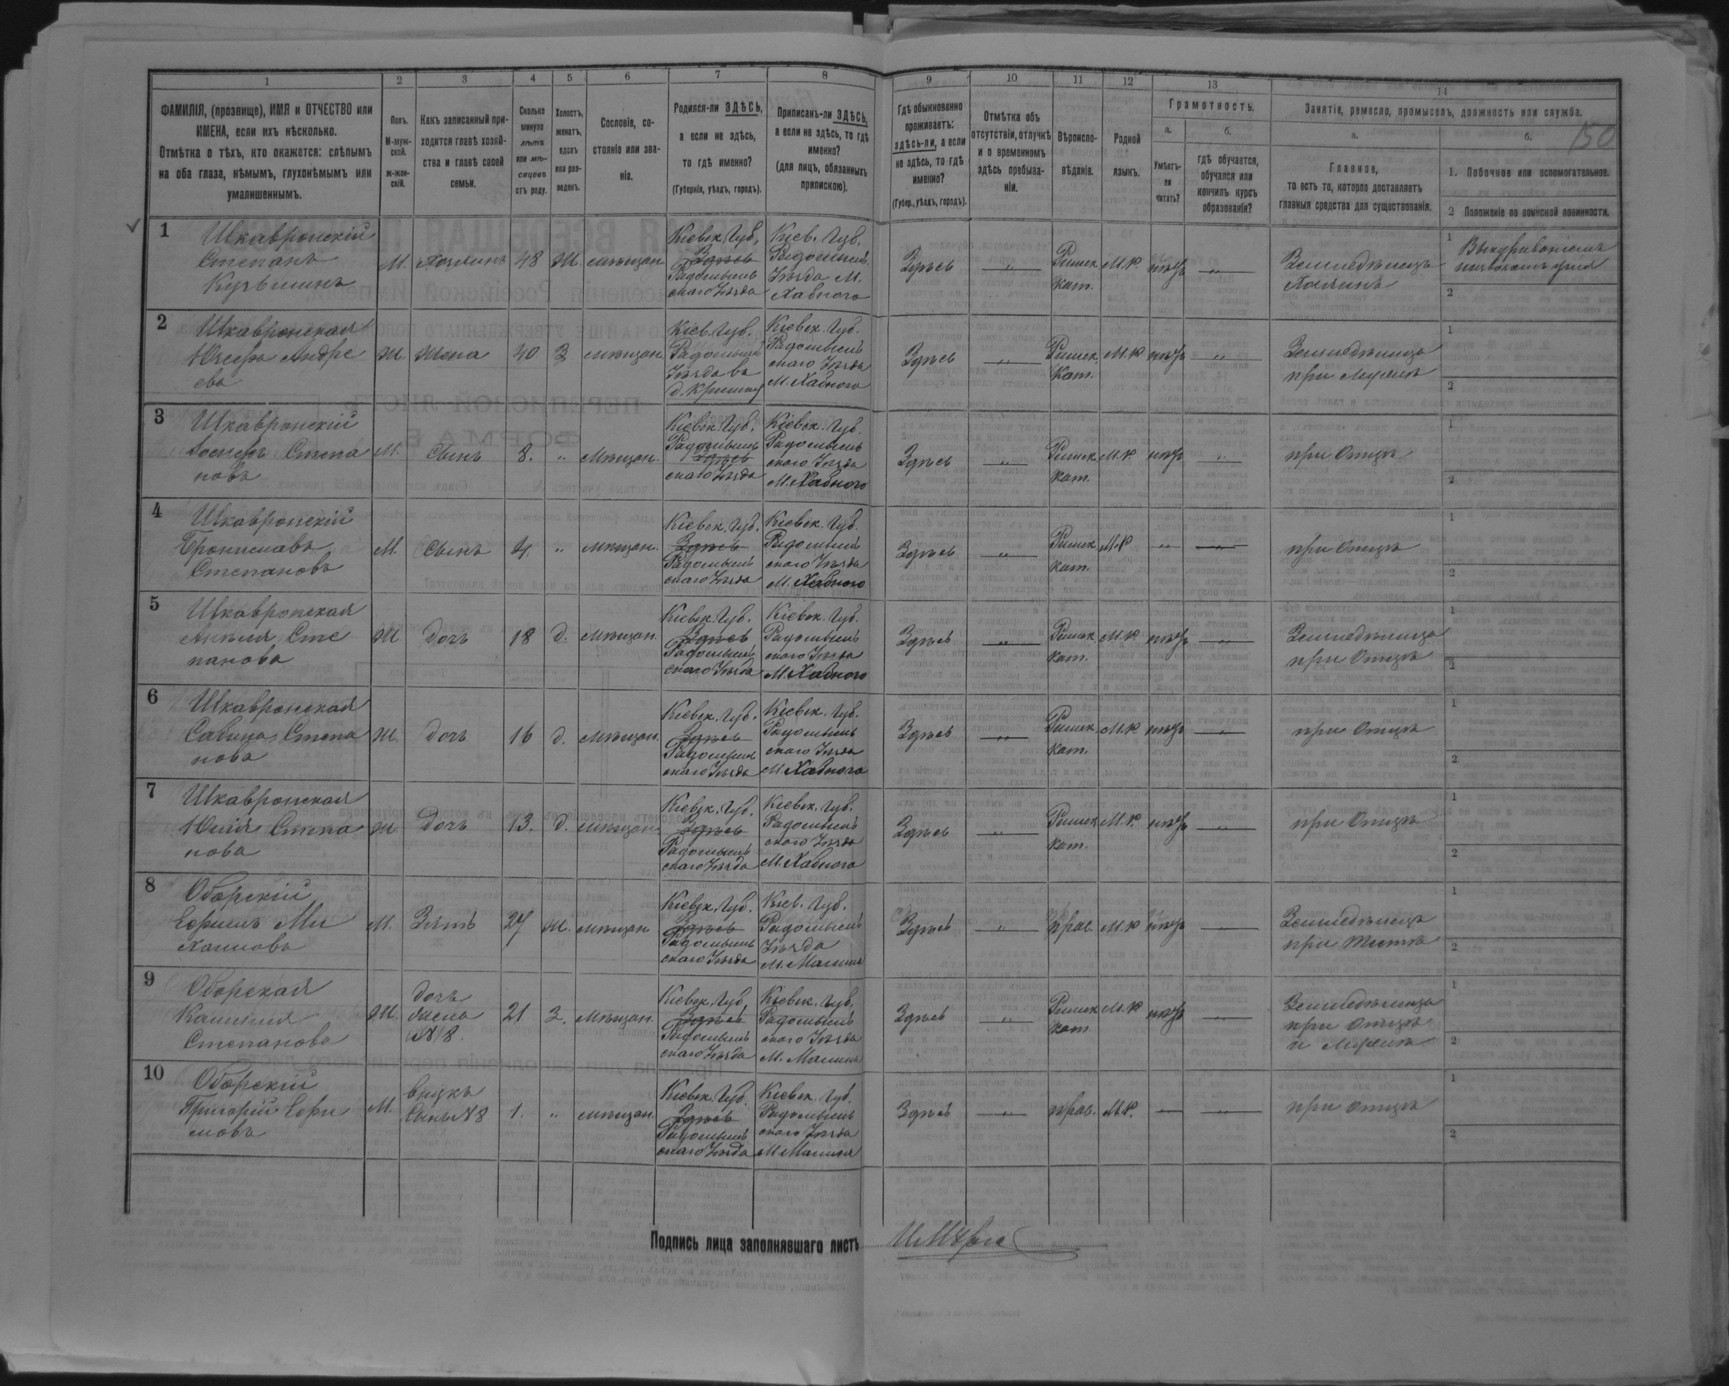 1
2
3
4
5
6
7
8
9
10
11
12
13
14
ФАМИЛІЯ, (прозвище), ИМЯ и ОТЧЕСТВО или
ИМЕНА, если ихъ нѣсколько.
Отмѣтка о тѣхъ, кто окажется: слѣпымъ
на оба глаза, нѣмымъ, глухонѣмымъ или
умалишеннымъ.
Полъ.
М-муж-
ской.
ж-жен-
скій.
Какъ записанный при-
ходится главѣ хозяй-
ства и главѣ своей
семьи.
Сколько
минуло
лѣтъ
или мѣ-
сяцевъ
отъ роду.
Холостъ,
женатъ,
вдовъ
или раз-
веденъ.
Сословіе, со-
стояніе или зва-
ніе.
Родился-ли ЗДѢСЬ,
а если не здѣсь,
то гдѣ именно?
(Губернія, уѣздъ, городъ).
Приписанъ-ли ЗДѢСЬ,
а если не здѣсь, то гдѣ
именно?
(для лицъ, обязанныхъ
припискою).
Гдѣ обыкновенно
проживаетъ:
здѣсь-ли, а если
не здѣсь, то гдѣ
именно?
(Губер., уѣздъ, городъ).
Отмѣтка объ
отсутствіи, отлучкѣ
и о временномъ
здѣсь пребыва-
ніи.
Вѣроиспо-
вѣданіе.
Родной
языкъ.
Грамотность.
а.
Умѣетъ-
ли
читать?
б.
гдѣ обучается,
обучался или
кончилъ курсъ
образованія?
Занятіе, ремесло, промыселъ, должность или служба.
а.
Главное,
то есть то, которое доставляетъ
главныя средства для существованія.
б.
150
1. Побочное или вспомогательное.
2 Положеніе по воинской повинности.
1
Шкавронскій
Степанъ
М.
Хозяинъ
48
Ж.
мѣщан
Кіевск. Губ.
Здѣсь
Радомысль
скаго Уѣзда
Кіев. Губ.
Радомысль
Уѣзда М.
Хабного
Здѣсь
Римск
кат.
Земледѣлецъ
Хозяинъ
1
2
2
Шкавронская
Юзефа Андре
ева
ж
жена
40
З
мѣщан.
Кіев. Губ.
Радомысль
Уѣзда въ
Кіевск. Губ.
Радомысль
скаго Уѣзда
М. Хабного
Здѣсь
Римск
Кат.
Земледѣлица
при мужѣ
1
2
3
Шкавронскій
Степа
новъ
М.
Сынъ
8.
"
Мѣщан.
Кіевск. Губ.
Радомысль
Здѣсь
скаго Уѣзда
Кіевск. Губ.
Радомысль
скаго Уѣзда
М. Хабного
Здѣсь
Римск
кат.
при Отцѣ
1
2
4
Шкавронскій
Брониславъ
Степановъ
М.
Сынъ
4.
"
мѣщан.
Кіевск. Губ.
Здѣсь
Радомысль
скаго Уѣзда
Кіевск. Губ.
Радомысль
скаго Уѣзда
М. Хабного
Здѣсь
Римск
кат.
при Отцѣ
1
2
5
Шкавронская
Анѣля Сте
панова
ж
дочь
18
д.
мѣщан.
Кіевск. Губ.
Здѣсь
Радомысль
скаго Уѣзда
Кіевск. Губ.
Радомысль
скаго Уѣзда
М. Хабного
Здѣсь
Римск
кат.
Земледѣлица
при Отцѣ
1
2
6
Шкавронская
Степа
нова
ж.
дочь
16
д.
мѣщан.
Кіевск. Губ.
Здѣсь
Радомысль
скаго Уѣзда
Кіевск. Губ.
Радомысль
скаго Уѣзда
М. Хабного
Здѣсь
Римск
кат.
при Отцѣ
1
2
7
Шкавронская
Юлія Степа
нова
ж
дочь
13.
д.
мѣщан
Кіевск. Губ.
Здѣсь
Радомысль
скаго Уѣзда
Кіевск. Губ.
Радомысль
скаго Уѣзда
М. Хабного
Здѣсь
Римск
кат.
при Отцѣ
1
2
8
Оборскій
М.
Зять
27
ж.
мѣщан
Кіевск. Губ.
Здѣсь
Радомысль
скаго Уѣзда
Кіев. Губ.
Радомысль
Уѣзда
М. Малина
Здѣсь
прав.
Земледѣлецъ
при тестѣ
1
2
9
Оборская
Степанова
ж.
дочь
жена
№ 8.
21
З.
мѣщан.
Кіевск. Губ.
Здѣсь
Радомысль
скаго Уѣзда
Кіевск. Губ.
Радомысль
скаго Уѣзда
М. Малина
Здѣсь
Римск
кат.
Земледѣлица
при Отцѣ
и мужѣ
1
2
10
Оборскій
Григорій Ефи
мовъ
М.
внукъ
Сынъ №8
1.
"
мѣщан.
Кіевск. Губ.
Здѣсь
Радомысль
скаго Уѣзда
Кіевск. Губ.
Радомысль
скаго Уѣзда
М Малина
Здѣсь
прав.
при отцѣ
1
2
Подпись лица заполнявшаго листъ